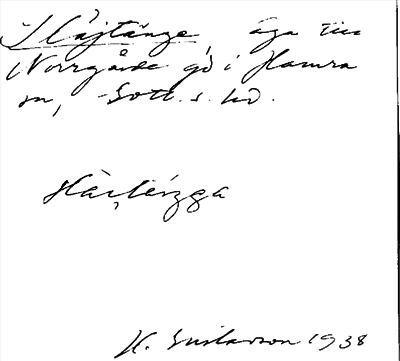 Slåjtänge, äga till
Norrgårde gd i Hamra
sn, Gotl. s. hd.
H. Gustavson 1938